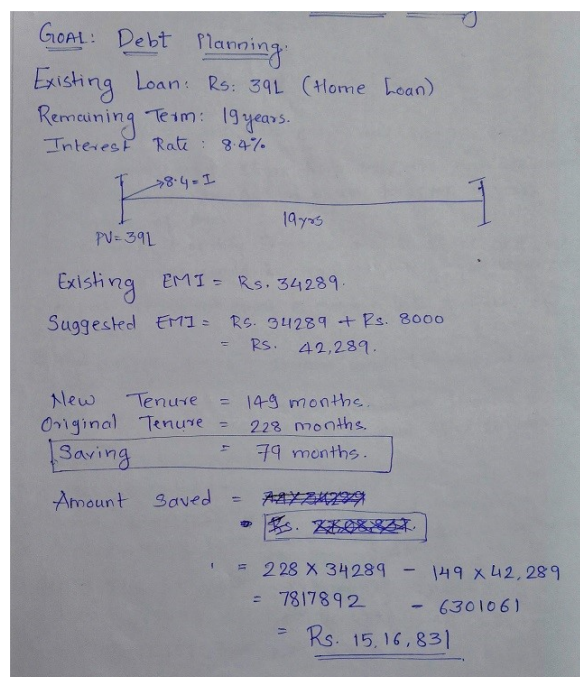 GOAL: Debt Planning.
Existing Loan: Rs: 39L (Home Loan)
Remaining Term: 19 years.
Interest Rate : 8.4%
8.4 = I
19 yrs
PV = 39L
Existing EMI = Rs. 34289.
Suggested EMI = Rs. 34289 + Rs. 8000
= Rs. 42,289.
New Tenure = 149 months.
Original Tenure = 228 months
Saving = 79 months.
Amount saved =
Rs.
= 228 X 34289 - 149 X 42,289
= 7817892 - 6301061
= Rs. 15,16,831